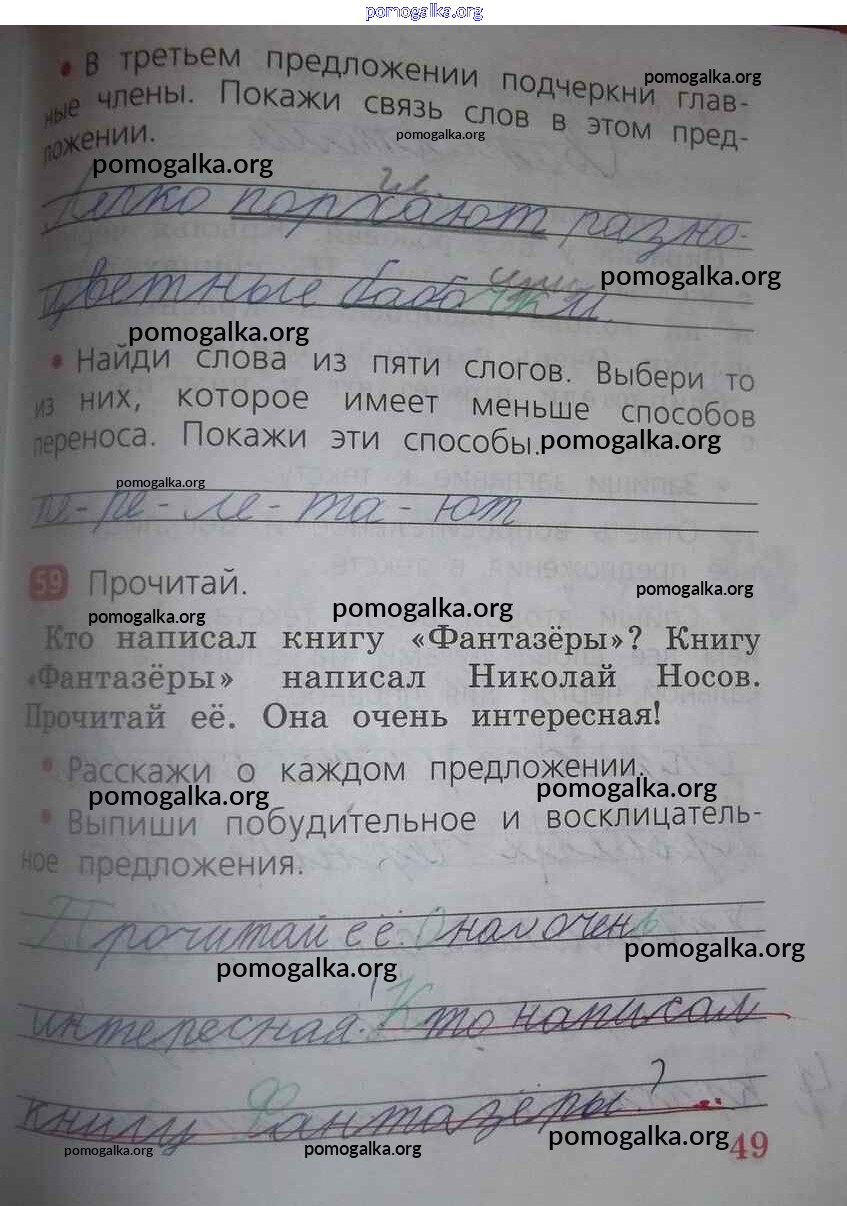 pomogalka.org
• В третьем предложении подчеркни глав-
pomogalka.org
ные члены. Покажи связь слов в этом пред-
pomogalka.org
ложении.
pomogalka.org
гл.
Легко порхают разно-
pomogalka.org
цветные бабочки.
pomogalka.org
• Найди слова из пяти слогов. Выбери то
из них, которое имеет меньше способов
переноса. Покажи эти способы.
pomogalka.org
pomogalka.org
пе-ре-ле-та-ют
59 Прочитай.
pomogalka.org
pomogalka.org
pomogalka.org
Кто написал книгу «Фантазёры»? Книгу
«Фантазёры» написал Николай Носов.
Прочитай её. Она очень интересная!
• Расскажи о каждом предложении.
pomogalka.org
pomogalka.org
• Выпиши побудительное и восклицатель-
ное предложения.
Прочитай её. Она очень
pomogalka.org
pomogalka.org
интересная! Кто написал
книгу Фантазёры?
pomogalka.org
49
pomogalka.org
pomogalka.org
pomogalka.org